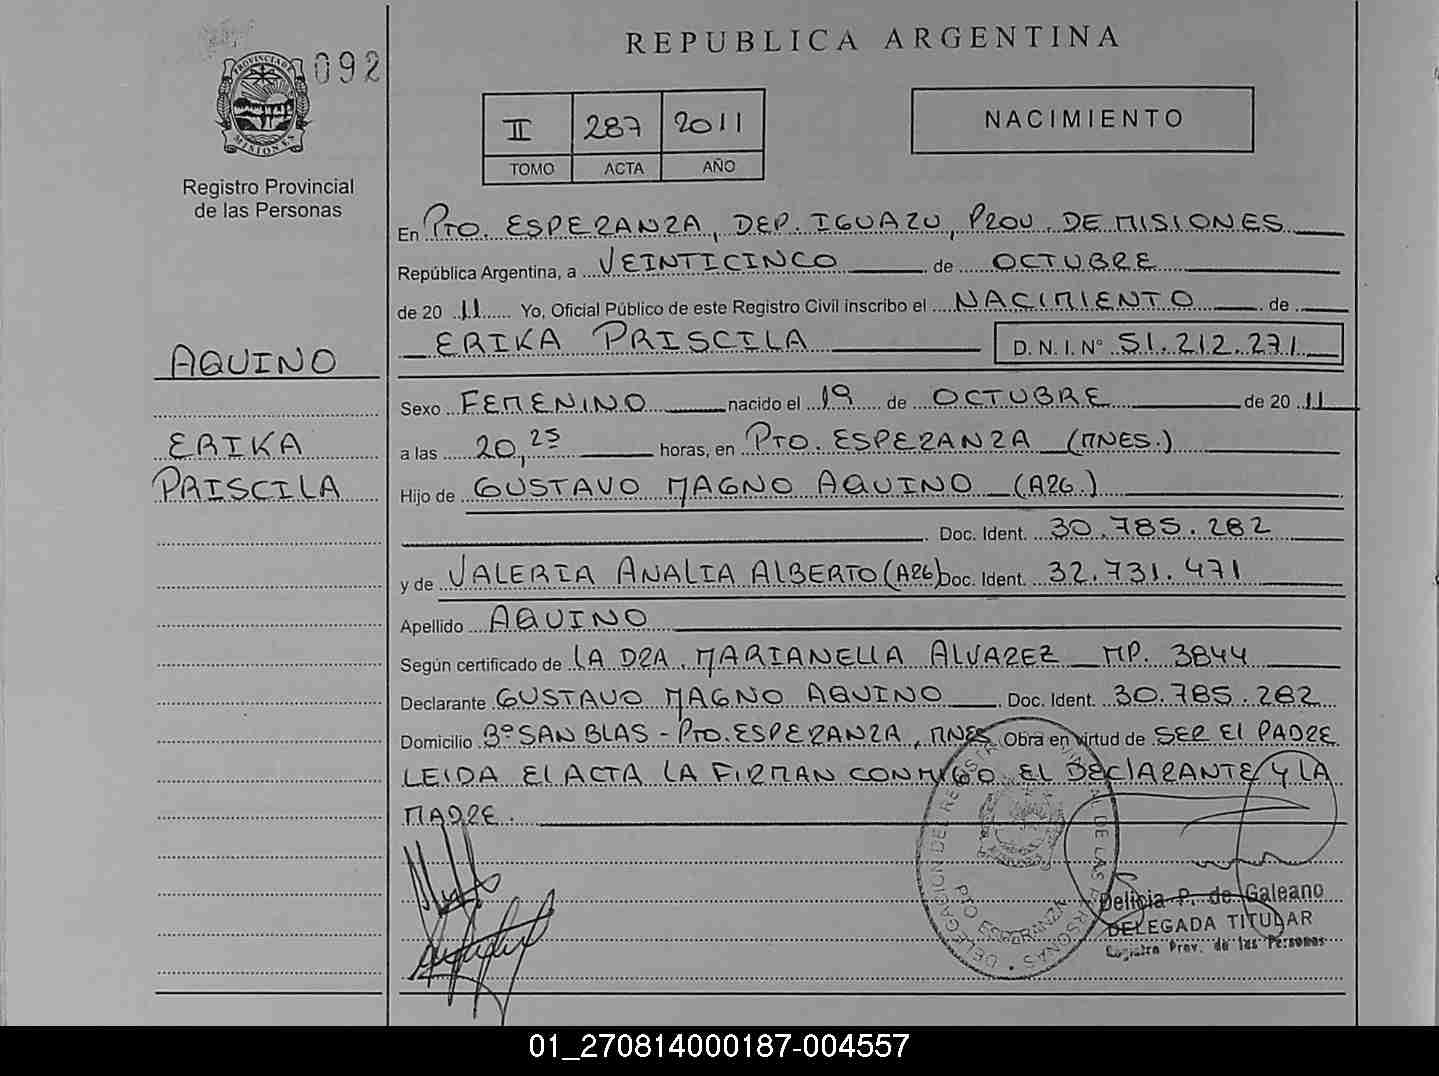 REPUBLICA ARGENTINA
092
PROVINCIA DE
MISIONES
Registro Provincial
de las Personas
II 287 2011
TOMO ACTA AÑO
NACIMIENTO
En PTO. ESPERANZA, DEP. IGUAZU, PROV. DE MISIONES
República Argentina, a VEINTICINCO de OCTUBRE
de 20 11 Yo, Oficial Público de este Registro Civil inscribo el NACIMIENTO de
ERIKA PRISCILA D.N.I. N° 51.212.271
AQUINO
ERIKA
PRISCILA
Sexo FEMENINO nacido el 19 de OCTUBRE de 20 11
a las 20,25 horas, en PTO. ESPERANZA (MNES.)
Hijo de GUSTAVO MAGNO AQUINO (ARG.)
Doc. Ident. 30.785.282
y de VALERIA ANALIA ALBERTO (ARG) Doc. Ident. 32.731.471
Apellido AQUINO
Según certificado de LA DRA. MARIANELLA ALVAREZ MP. 3844
Declarante GUSTAVO MAGNO AQUINO Doc. Ident. 30.785.282
Domicilio Bº SAN BLAS - PTO. ESPERANZA, MNES Obra en virtud de SER EL PADRE
LEIDA EL ACTA LA FIRMAN CONMIGO EL DECLARANTE Y LA
MADRE.
DELEGACION DEL REGISTRO PROVINCIAL DE LAS PERSONAS
PTO ESPERANZA
Delicia P. de Galeano
DELEGADA TITULAR
Registro Prov. de las Personas
01_270814000187-004557